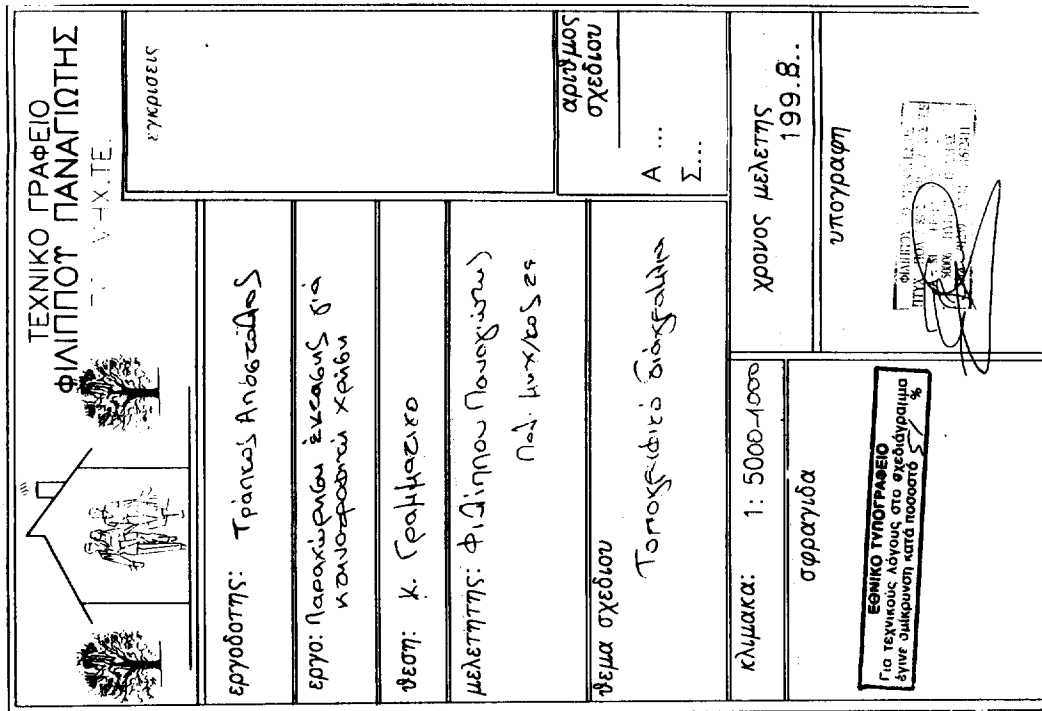 ΤΕΧΝΙΚΟ ΓΡΑΦΕΙΟ
ΦΙΛΙΠΠΟΥ ΠΑΝΑΓΙΩΤΗΣ
εγκρισεις
εργοδοτης: Τράπκος Απόστολος
εργο: Παραχώρηση έκτασης γιά
κτηνοτροφική χρήση
θεση: Κ. Γραμματικο
μελετητης: Φιλίππου Παναγιώτης
Πολ. μηχ/κος
αριθμος
σχεδιου
Α ...
Σ....
θεμα σχεδιου
Τοπογραφικό διάγραμμα
κλιμακα: 1: 5000-1000
χρονος μελετης
199.8..
σφραγιδα
υπογραφη
ΕΘΝΙΚΟ ΤΥΠΟΓΡΑΦΕΙΟ
Για τεχνικούς λόγους στο σχεδιάγραμμα
έγινε σμίκρυνση κατά ποσοστό 51 %